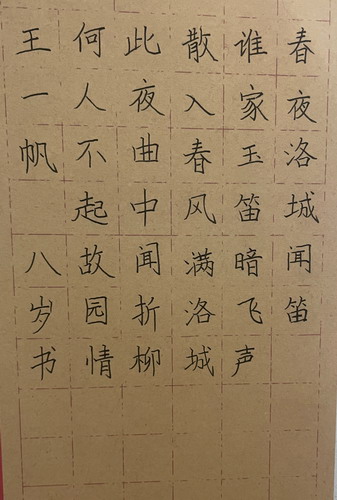 春夜洛城闻笛
谁家玉笛暗飞声
散入春风满洛城
此夜曲中闻折柳
何人不起故园情
王一帆 八岁书